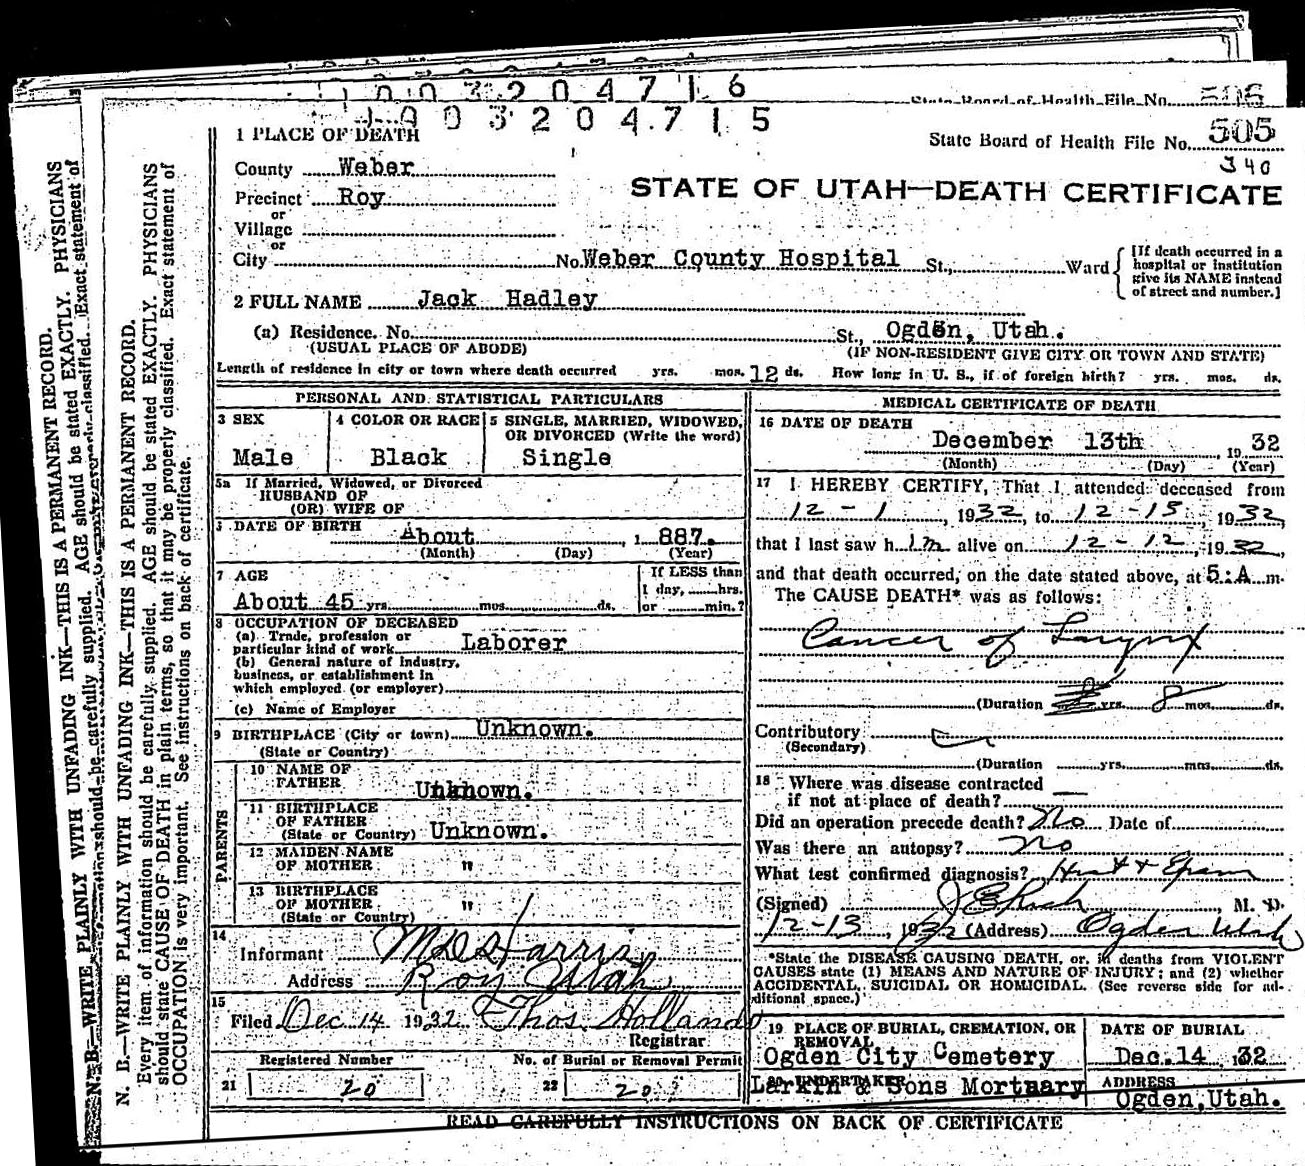 1003204716
State Board of Health File No. 506
1003204715
1 PLACE OF DEATH
State Board of Health File No. 505
340
County Weber
STATE OF UTAH—DEATH CERTIFICATE
Precinct Roy
or
Village
or
City No. Weber County Hospital St., Ward
[If death occurred in a hospital or institution give its NAME instead of street and number.]
2 FULL NAME Jack Hadley
(a) Residence. No. St., Ogden, Utah.
(USUAL PLACE OF ABODE) (IF NON-RESIDENT GIVE CITY OR TOWN AND STATE)
Length of residence in city or town where death occurred yrs. mos. 12 ds. How long in U. S., if of foreign birth? yrs. mos. ds.
PERSONAL AND STATISTICAL PARTICULARS
3 SEX
Male
4 COLOR OR RACE
Black
5 SINGLE, MARRIED, WIDOWED, OR DIVORCED (Write the word)
Single
5a If Married, Widowed, or Divorced
HUSBAND OF
(OR) WIFE OF
DATE OF BIRTH About 1 887.
(Month) (Day) (Year)
7 AGE
About 45 yrs. mos. ds.
If LESS than
1 day, hrs.
or min.?
8 OCCUPATION OF DECEASED
(a) Trade, profession or
particular kind of work Laborer
(b) General nature of industry,
business, or establishment in
which employed (or employer)
(c) Name of Employer
9 BIRTHPLACE (City or town) Unknown.
(State or Country)
PARENTS
10 NAME OF
FATHER Unknown.
11 BIRTHPLACE
OF FATHER
(State or Country) Unknown.
12 MAIDEN NAME
OF MOTHER "
13 BIRTHPLACE
OF MOTHER "
(State or Country)
14
Informant M D Harris
Address Roy Utah
15
Filed Dec 14 1932 Thos Hollands
Registrar
Registered Number No. of Burial or Removal Permit
21 20 22 20
MEDICAL CERTIFICATE OF DEATH
16 DATE OF DEATH
December 13th, 19 32
(Month) (Day) (Year)
17 I HEREBY CERTIFY, That I attended deceased from
12-1, 1932, to 12-13, 1932,
that I last saw him alive on 12-12, 1932,
and that death occurred, on the date stated above, at 5:A m.
The CAUSE DEATH* was as follows:
Cancer of Larynx
(Duration yrs. 8 mos. ds.
Contributory
(Secondary)
(Duration yrs. mos. ds.
18 Where was disease contracted
if not at place of death?
Did an operation precede death? No Date of
Was there an autopsy? No
What test confirmed diagnosis? Hist + Exam
(Signed) , M. D.
12-13, 1932 (Address) Ogden Utah
*State the DISEASE CAUSING DEATH, or, in deaths from VIOLENT
CAUSES state (1) MEANS AND NATURE OF INJURY; and (2) whether
ACCIDENTAL, SUICIDAL OR HOMICIDAL. (See reverse side for additional space.)
19 PLACE OF BURIAL, CREMATION, OR REMOVAL
Ogden City Cemetery
DATE OF BURIAL
Dec. 14 1932
20 UNDERTAKER
Larkin & Sons Mortuary
ADDRESS
Ogden, Utah.
READ CAREFULLY INSTRUCTIONS ON BACK OF CERTIFICATE
N. B.—WRITE PLAINLY WITH UNFADING INK—THIS IS A PERMANENT RECORD.
Every item of information should be carefully supplied. AGE should be stated EXACTLY. PHYSICIANS
should state CAUSE OF DEATH in plain terms, so that it may be properly classified. Exact statement of
OCCUPATION is very important. See instructions on back of certificate.
N. B.—WRITE PLAINLY WITH UNFADING INK—THIS IS A PERMANENT RECORD.
should be carefully supplied. AGE should be stated EXACTLY. PHYSICIANS
classified. Exact statement of